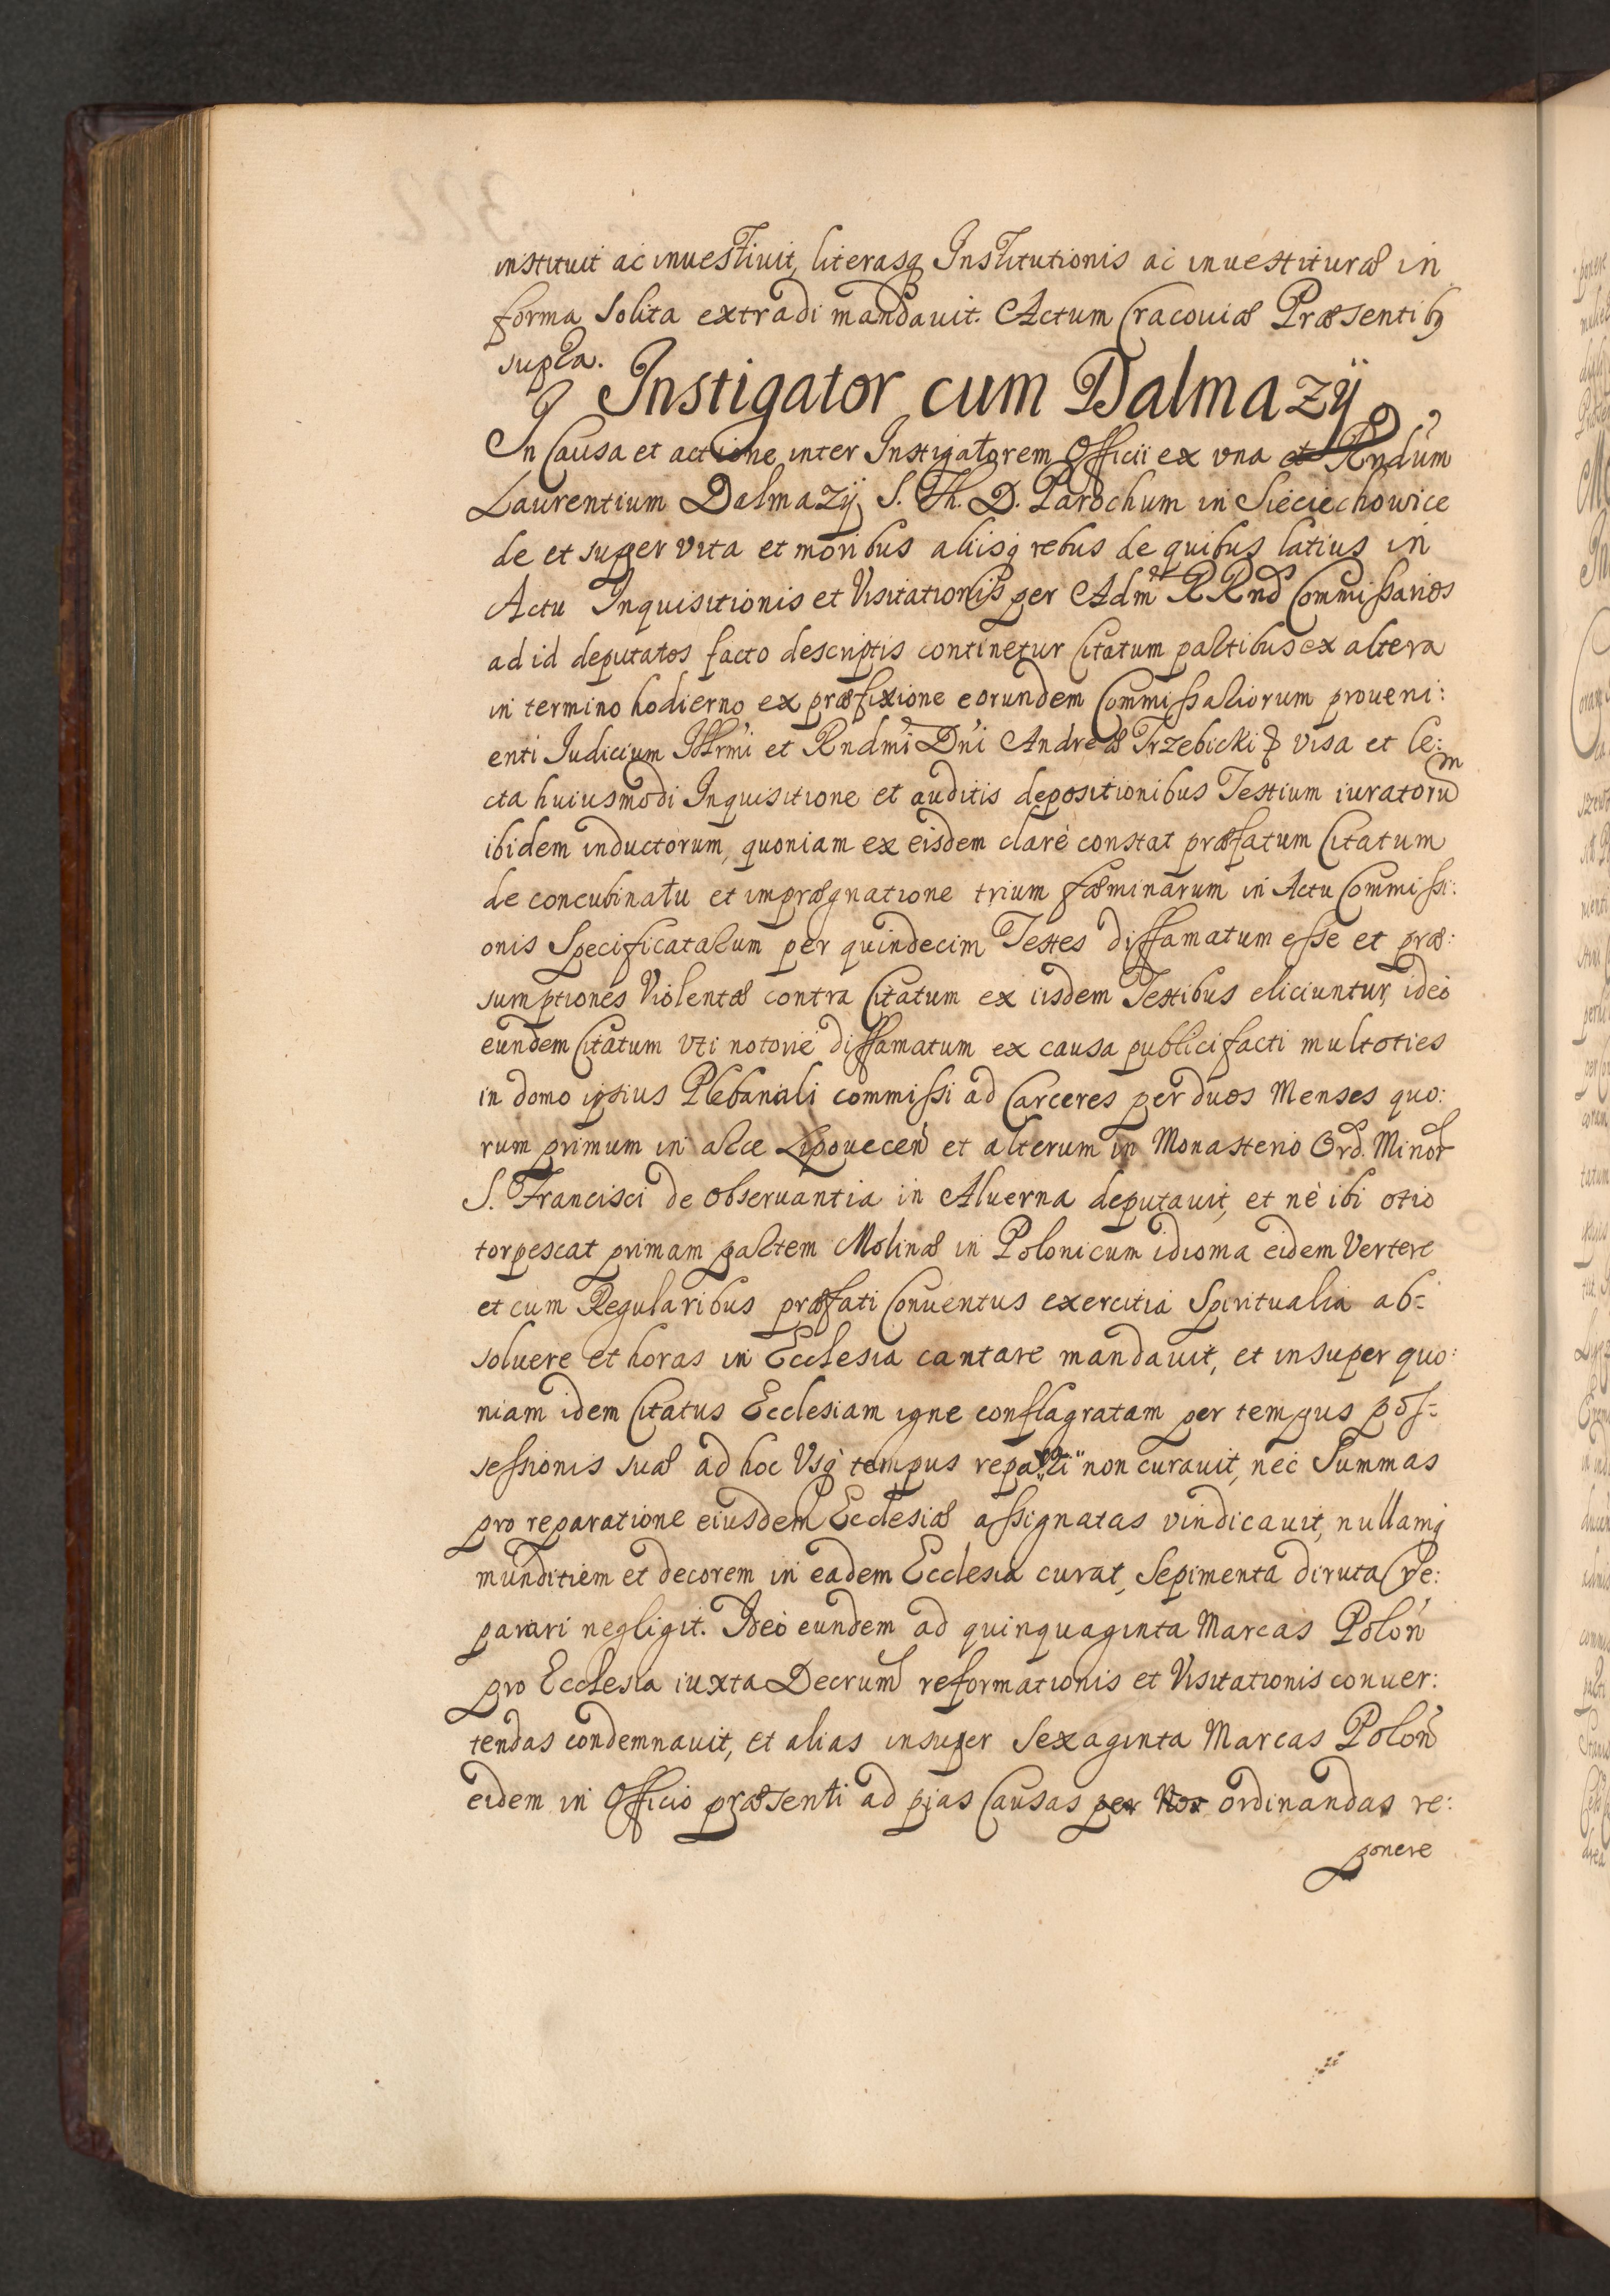 instituit ac inuestiuit, literasq₃ Institutionis ac inuestituræ in
forma solita extradi mandauit. Actum Cracouiæ Præsentib₉
supra.
Instigator cum Dalmazÿ
In Causa et actione inter Instigatorem Officii ex vna et Rndum
Laurentium Dalmazÿ S. Th. D. Parochum in Sieciechowice
de et super vita et moribus aliisq rebus de quibus latius in
Actu Inquisitionis et Visitationis per Adm RRnd Commissarios
ad id deputatos facto descriptis continetur Citatum partibus ex altera
in termino hodierno ex præfixione eorundem Commissariorum proueni:
enti Judicium Illrmi et Rndmi Dni Andreæ Trzebicki & visa et le:
cta huiusmodi Inquisitione et auditis depositionibus Testium iuratorum
ibidem inductorum, quoniam ex eisdem clarè constat præfatum Citatum
de concubinatu et imprægnatione trium fæminarum in Actu Commissi:
onis Specificatarum per quindecim Testes diffamatum esse et præ:
sumptiones Violentæ contra Citatum ex iisdem Testibus eliciuntur, ideo
eundem Citatum vti notoriè diffamatum ex causa publici facti multoties
in domo ipsius Plebanali commissi ad Carceres per duos Menses quo:
rum primum in arce Lipouecen et alterum in Monasterio Ord. Minor
S. Francisci de obseruantia in Aluerna deputauit, et nè ibi otio
torpescat primam partem Molinæ in Polonicum idioma eidem Vertere
et cum Regularibus præfati Conuentus exercitia Spiritualia ab:
soluere et horas in Ecclesia cantare mandauit, et insuper quo:
niam idem Citatus Ecclesiam igne conflagratam per tempus pos:
sessionis suæ ad hoc Vsq tempus non curauit, nec Summas
pro reparatione eiusdem Ecclesiæ assignatas vindicauit, nullamq
munditiem et decorem in eadem Ecclesia curat, Sepimenta diruta re:
parari negligit. Ideo eundem ad quinquaginta Marcas Polon
pro Ecclesia iuxta Decrum reformationis et Visitationis conuer:
tendas condemnauit, et alias insuper sexaginta Marcas Polon
eidem in Officio præsenti ad pias Causas per Nos ordinandas re:
ponere